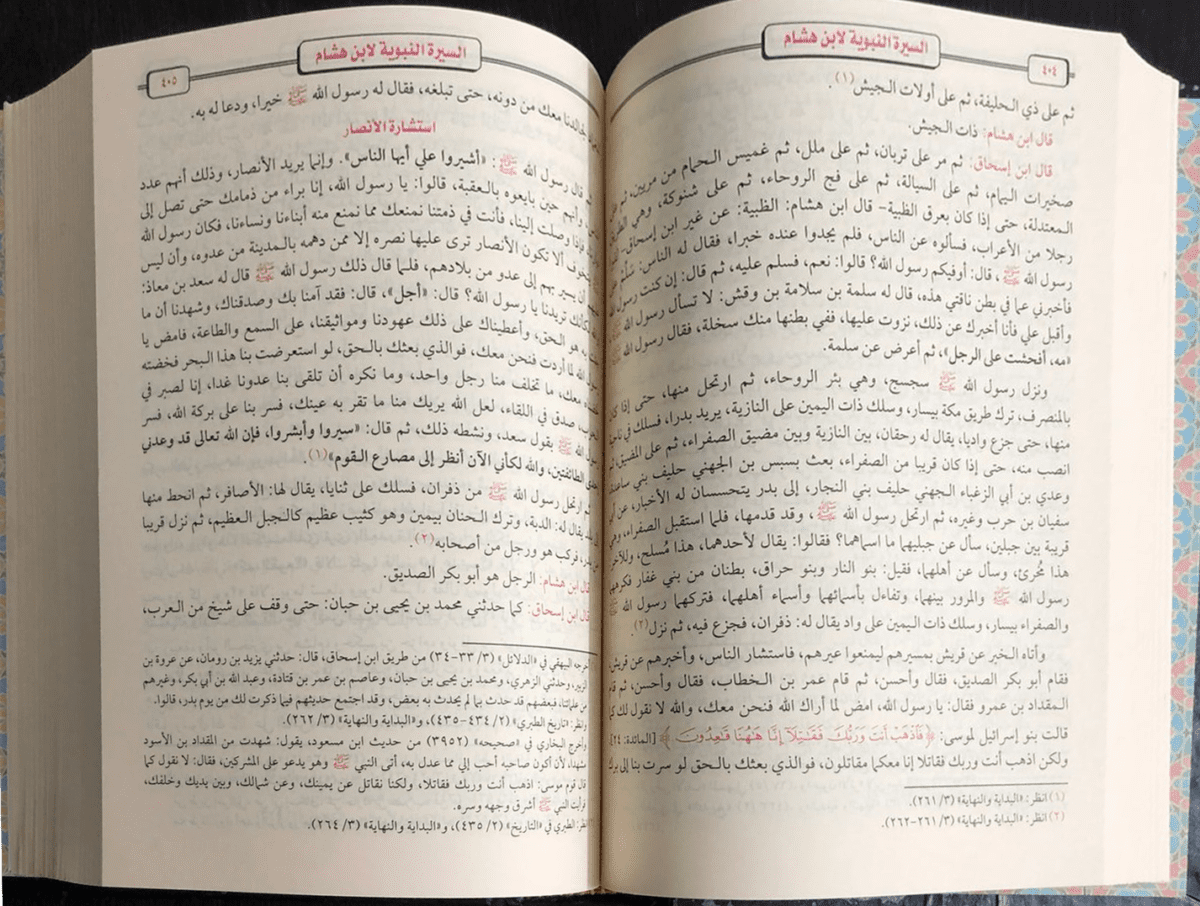 السيرة النبوية لابن هشام
٤٠٤
ثم على ذي الحليفة، ثم على أولات الجيش(١).
قال ابن هشام: ذات الجيش.
قال ابن إسحاق: ثم مر على تربان، ثم على ملل، ثم غميس الحمام من مريين، ثم على
صخيرات اليمام، ثم على السيالة، ثم على فج الروحاء، ثم على شنوكة، وهي الطريق
المعتدلة، حتى إذا كان بعرق الظبية- قال ابن هشام: الظبية: عن غير ابن إسحاق-
رجلا من الأعراب، فسألوه عن الناس، فلم يجدوا عنده خبرا، فقال له الناس: سلم على
رسول الله ﷺ، قال: أوفيكم رسول الله؟ قالوا: نعم، فسلم عليه، ثم قال: إن كنت رسول الله
فأخبرني عما في بطن ناقتي هذه، قال له سلمة بن سلامة بن وقش: لا تسأل رسول الله ﷺ
وأقبل علي فأنا أخبرك عن ذلك، نزوت عليها، ففي بطنها منك سخلة، فقال رسول الله ﷺ
«مه، أفحشت على الرجل»، ثم أعرض عن سلمة.
ونزل رسول الله ﷺ سجسج، وهي بئر الروحاء، ثم ارتحل منها، حتى إذا كان
بالمنصرف، ترك طريق مكة بيسار، وسلك ذات اليمين على النازية، يريد بدرا، فسلك في ناحية
منها، حتى جزع واديا، يقال له رحقان، بين النازية وبين مضيق الصفراء، ثم على المضيق، ثم
انصب منه، حتى إذا كان قريبا من الصفراء، بعث بسبس بن الجهني حليف بني ساعدة
وعدي بن أبي الزغباء الجهني حليف بني النجار، إلى بدر يتحسسان له الأخبار، عن أبي
سفيان بن حرب وغيره، ثم ارتحل رسول الله ﷺ، وقد قدمها، فلما استقبل الصفراء، وهي
قرية بين جبلين، سأل عن جبليها ما اسماهما؟ فقالوا: يقال لأحدهما، هذا مُسلح، وللآخر
هذا مُخرئ، وسأل عن أهلها، فقيل: بنو النار وبنو حراق، بطنان من بني غفار فكرههما
رسول الله ﷺ والمرور بينهما، وتفاءل بأسمائهما وأسماء أهلهما، فتركهما رسول الله ﷺ
والصفراء بيسار، وسلك ذات اليمين على واد يقال له: ذفران، فجزع فيه، ثم نزل(٢).
وأتاه الخبر عن قريش بمسيرهم ليمنعوا عيرهم، فاستشار الناس، وأخبرهم عن قريش،
فقام أبو بكر الصديق، فقال وأحسن، ثم قام عمر بن الخطاب، فقال وأحسن، ثم قام
المقداد بن عمرو فقال: يا رسول الله، امض لما أراك الله فنحن معك، والله لا نقول لك كما
قالت بنو إسرائيل لموسى: ﴿فَٱذْهَبْ أَنتَ وَرَبُّكَ فَقَٰتِلَآ إِنَّا هَٰهُنَا قَٰعِدُونَ﴾ [المائدة: ٢٤]
ولكن اذهب أنت وربك فقاتلا إنا معكما مقاتلون، فوالذي بعثك بالحق لو سرت بنا إلى برك
(١) انظر: «البداية والنهاية» (٣/ ٢٦١).
(٢) انظر: «البداية والنهاية» (٣/ ٢٦١-٢٦٢).
السيرة النبوية لابن هشام
٤٠٥
لجالدنا معك من دونه، حتى تبلغه، فقال له رسول الله ﷺ خيرا، ودعا له به.
استشارة الأنصار
قال رسول الله ﷺ: «أشيروا علي أيها الناس». وإنما يريد الأنصار، وذلك أنهم عدد
وأنهم حين بايعوه بالعقبة، قالوا: يا رسول الله، إنا براء من ذمامك حتى تصل إلى
فإذا وصلت إلينا، فأنت في ذمتنا نمنعك مما نمنع منه أبناءنا ونساءنا، فكان رسول الله
يتخوف ألا تكون الأنصار ترى عليها نصره إلا ممن دهمه بالمدينة من عدوه، وأن ليس
أن يسير بهم إلى عدو من بلادهم، فلما قال ذلك رسول الله ﷺ قال له سعد بن معاذ:
لكأنك تريدنا يا رسول الله؟ قال: «أجل»، قال: فقد آمنا بك وصدقناك، وشهدنا أن ما
به هو الحق، وأعطيناك على ذلك عهودنا ومواثيقنا، على السمع والطاعة، فامض يا
الله لما أردت فنحن معك، فوالذي بعثك بالحق، لو استعرضت بنا هذا البحر فخضته
معك، ما تخلف منا رجل واحد، وما نكره أن تلقى بنا عدونا غدا، إنا لصبر في
صدق في اللقاء، لعل الله يريك منا ما تقر به عينك، فسر بنا على بركة الله، فسر
رسول الله ﷺ بقول سعد، ونشطه ذلك، ثم قال: «سيروا وأبشروا، فإن الله تعالى قد وعدني
الطائفتين، والله لكأني الآن أنظر إلى مصارع القوم»(١).
ثم ارتحل رسول الله ﷺ من ذفران، فسلك على ثنايا، يقال لها: الأصافر، ثم انحط منها
يقال له: الدبة، وترك الحنان بيمين وهو كثيب عظيم كالجبل العظيم، ثم نزل قريبا
فركب هو ورجل من أصحابه(٢).
قال ابن هشام: الرجل هو أبو بكر الصديق.
قال ابن إسحاق: كما حدثني محمد بن يحيى بن حبان: حتى وقف على شيخ من العرب،
أخرجه البيهقي في «الدلائل» (٣/ ٣٣-٣٤) من طريق ابن إسحاق، قال: حدثني يزيد بن رومان، عن عروة بن
الزبير، وحدثني الزهري، ومحمد بن يحيى بن حبان، وعاصم بن عمر بن قتادة، وعبد الله بن أبي بكر، وغيرهم
من علمائنا، فبعضهم قد حدث بما لم يحدث به بعض، وقد اجتمع حديثهم فيما ذكرت لك من يوم بدر، قالوا.
وانظر: «تاريخ الطبري» (٢/ ٤٣٤-٤٣٥)، و«البداية والنهاية» (٣/ ٢٦٢).
وأخرج البخاري في «صحيحه» (٣٩٥٢) من حديث ابن مسعود، يقول: شهدت من المقداد بن الأسود
مشهدا، لأن أكون صاحبه أحب إلي مما عدل به، أتى النبي ﷺ وهو يدعو على المشركين، فقال: لا نقول كما
قال قوم موسى: اذهب أنت وربك فقاتلا، ولكنا نقاتل عن يمينك، وعن شمالك، وبين يديك وخلفك،
فرأيت النبي ﷺ أشرق وجهه وسره.
انظر: الطبري في «التاريخ» (٢/ ٤٣٥)، و«البداية والنهاية» (٣/ ٢٦٤).